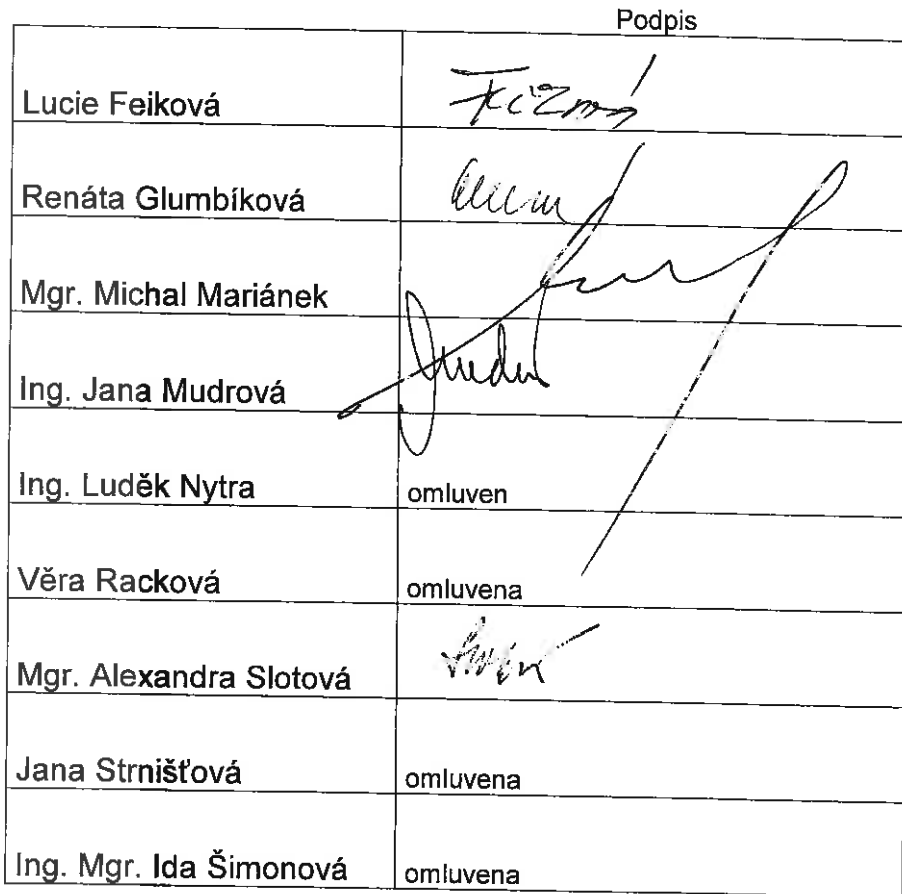 Podpis
Lucie Feiková
Renáta Glumbíková
Mgr. Michal Mariánek
Ing. Jana Mudrová
Ing. Luděk Nytra omluven
Věra Racková omluvena
Mgr. Alexandra Slotová
Jana Strnišťová omluvena
Ing. Mgr. Ida Šimonová omluvena